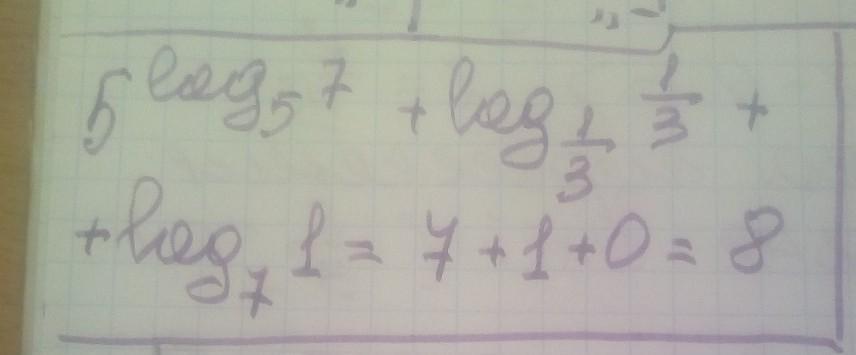 5^{log_5 7} + log_{1/3} 1/3 +
+ log_7 1 = 7 + 1 + 0 = 8